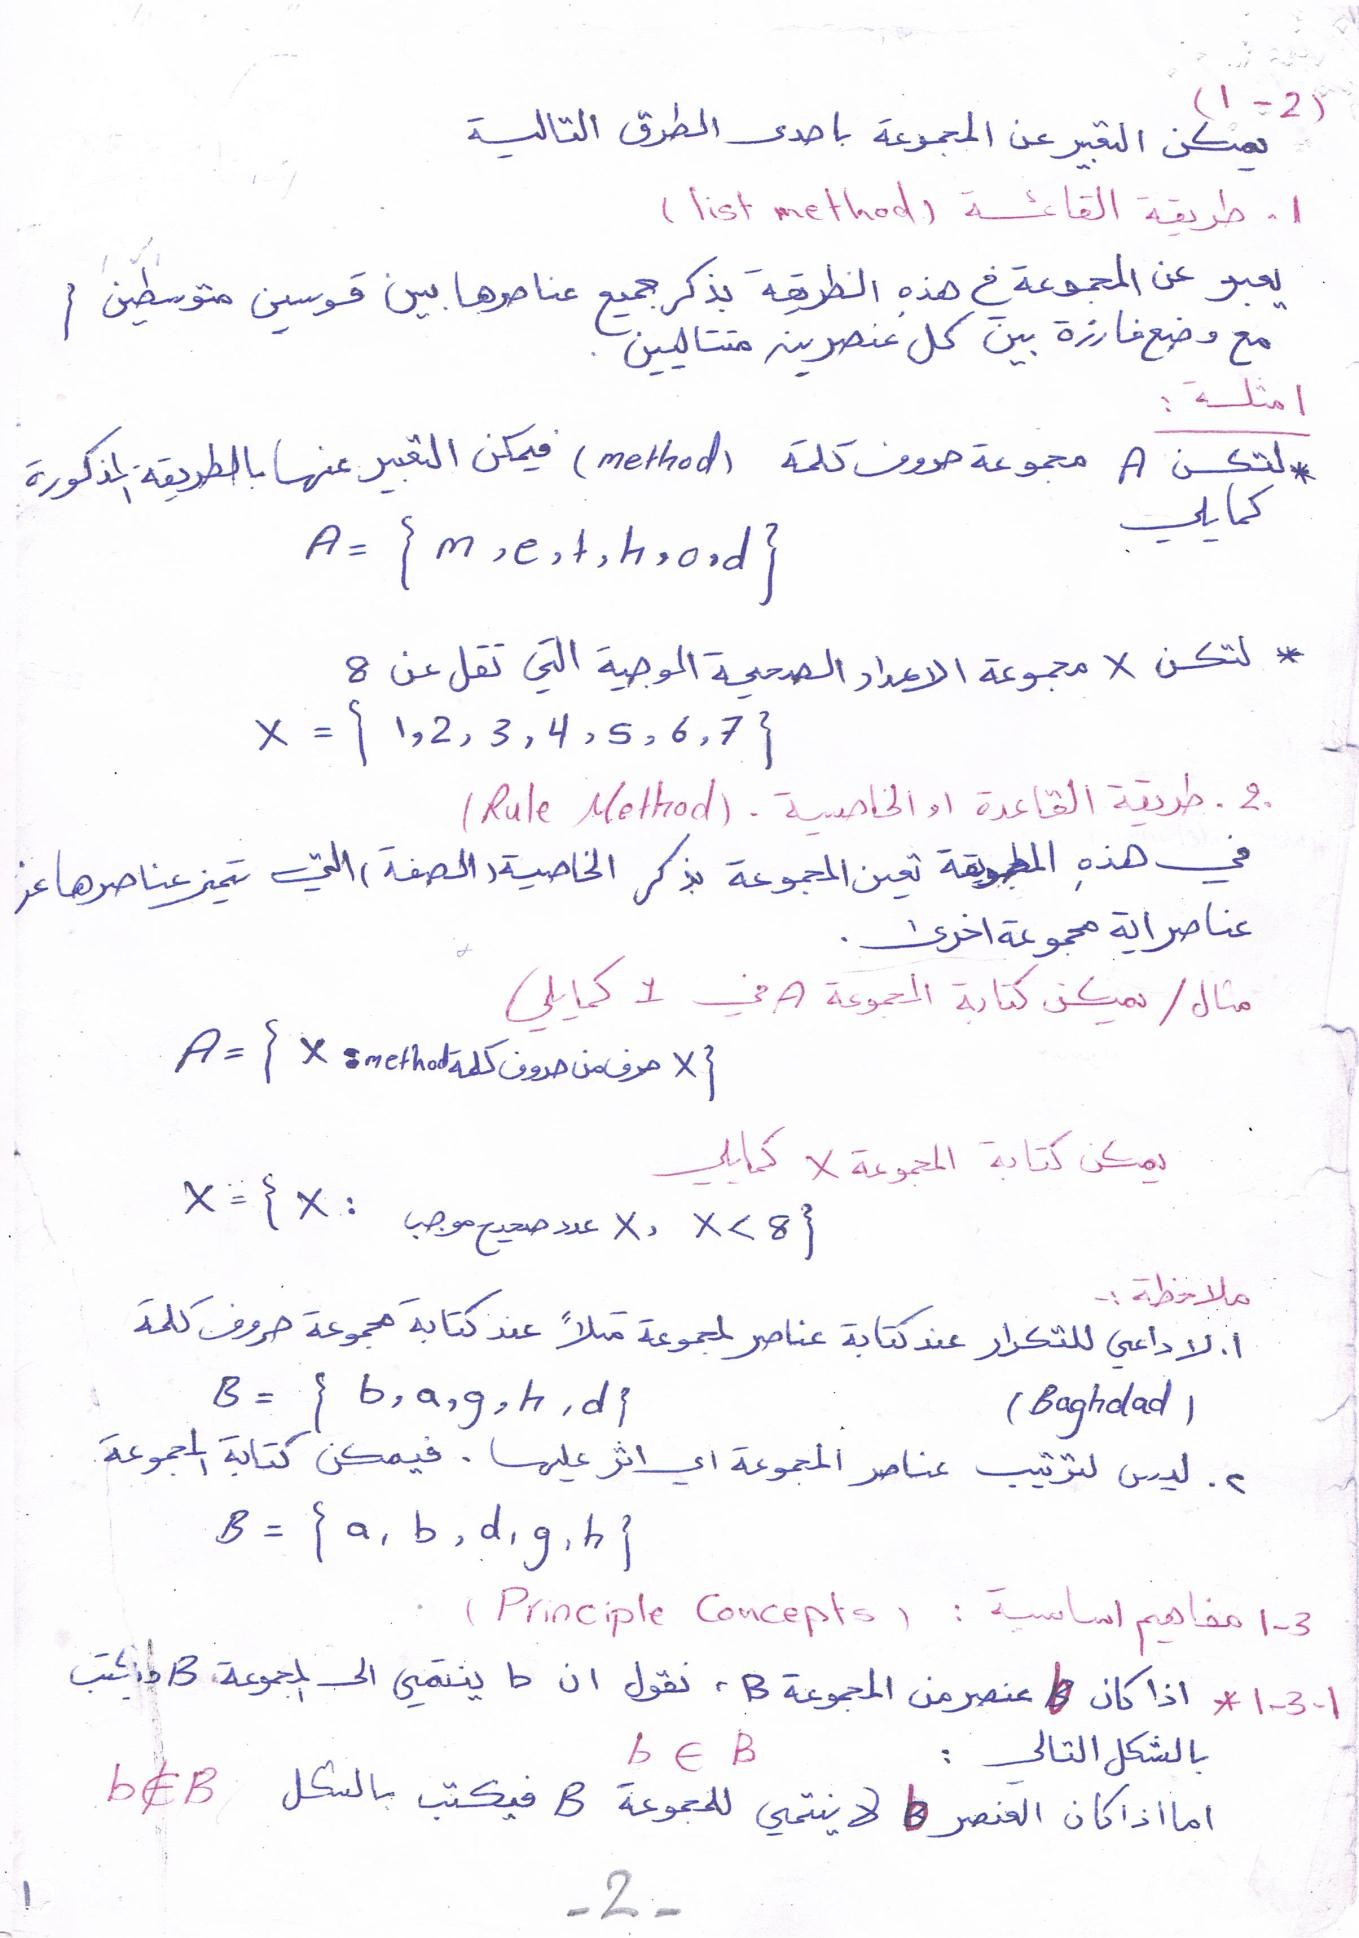 (1-2)
يمكن التعبير عن المجموعة باحدى الطرق التالية
1. طريقة القائمة (list method)
يعبر عن المجموعة في هذه الطريقة بذكر جميع عناصرها بين قوسين متوسطين {
مع وضع فارزة بين كل عنصرين متتاليين.
امثلة :
* لتكن A مجموعة حروف كلمة (method) فيمكن التعبير عنها بالطريقة المذكورة
كمايلي
A = { m, e, t, h, o, d }
* لتكن X مجموعة الاعداد الصحيحة الموجبة التي تقل عن 8
X = { 1, 2, 3, 4, 5, 6, 7 }
2. طريقة القاعدة او الخاصية. (Rule Method)
في هذه الطريقة تعين المجموعة بذكر الخاصية (الصفة) التي تتميز عناصرها عن
عناصر اية مجموعة اخرى.
مثال / يمكن كتابة المجموعة A في 1 كمايلي
A = { X : method حرف من حروف كلمة X }
يمكن كتابة المجموعة X كمايلي
X = { X : عدد صحيح موجب X, X < 8 }
ملاحظة :-
1. لا داعي للتكرار عند كتابة عناصر لمجموعة مثلاً عند كتابة مجموعة حروف كلمة
(Baghdad) B = { b, a, g, h, d }
2. ليس لترتيب عناصر المجموعة اي اثر عليها. فيمكن كتابة المجموعة
B = { a, b, d, g, h }
1-3 مفاهيم اساسية : (Principle Concepts)
1-3-1 * اذا كان b عنصر من المجموعة B، نقول ان b ينتمي الى المجموعة B ويكتب
بالشكل التالي : b ∈ B
اما اذا كان العنصر b لا ينتمي للمجموعة B فيكتب بالشكل b ∉ B
-2-
1